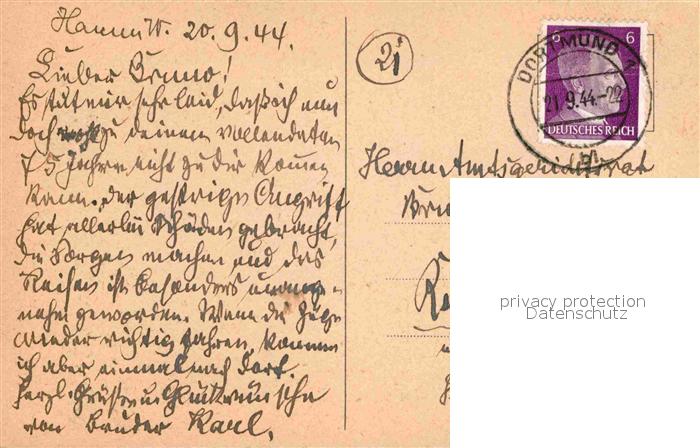 Hamm i/W. 20.9.44.
Lieber Bruno!
Es tut mir sehr leid, daß ich nun
doch nicht zu deinem vollendeten
75 Jahren nicht zu dir kommen
kann. Der gestrige Angriff
hat allerlei Schäden gebracht,
die Sorgen machen und das
Reisen ist besonders unange-
nehm geworden. Wenn die Züge
wieder richtig fahren, komme
ich aber einmal nach dort.
Herzl. Grüße u Glückwünsche
von Bruder Karl.
21
6 6
DORTMUND 2
21.9.44.-22
DEUTSCHES REICH
Herrn Amtsgerichtsrat
privacy protection
Datenschutz